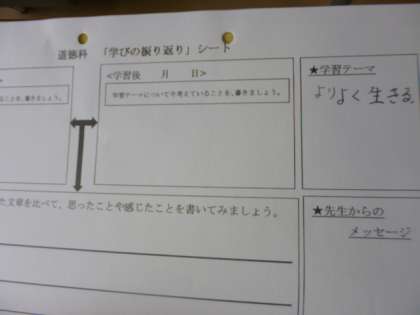 道徳科 「学びの振り返り」シート
<学習後 月 日>
★学習テーマ
ることを、書きましょう。
学習テーマについて今考えていることを、書きましょう。
よりよく生きる
た文章を比べて、思ったことや感じたことを書いてみましょう。
★先生からの
メッセージ